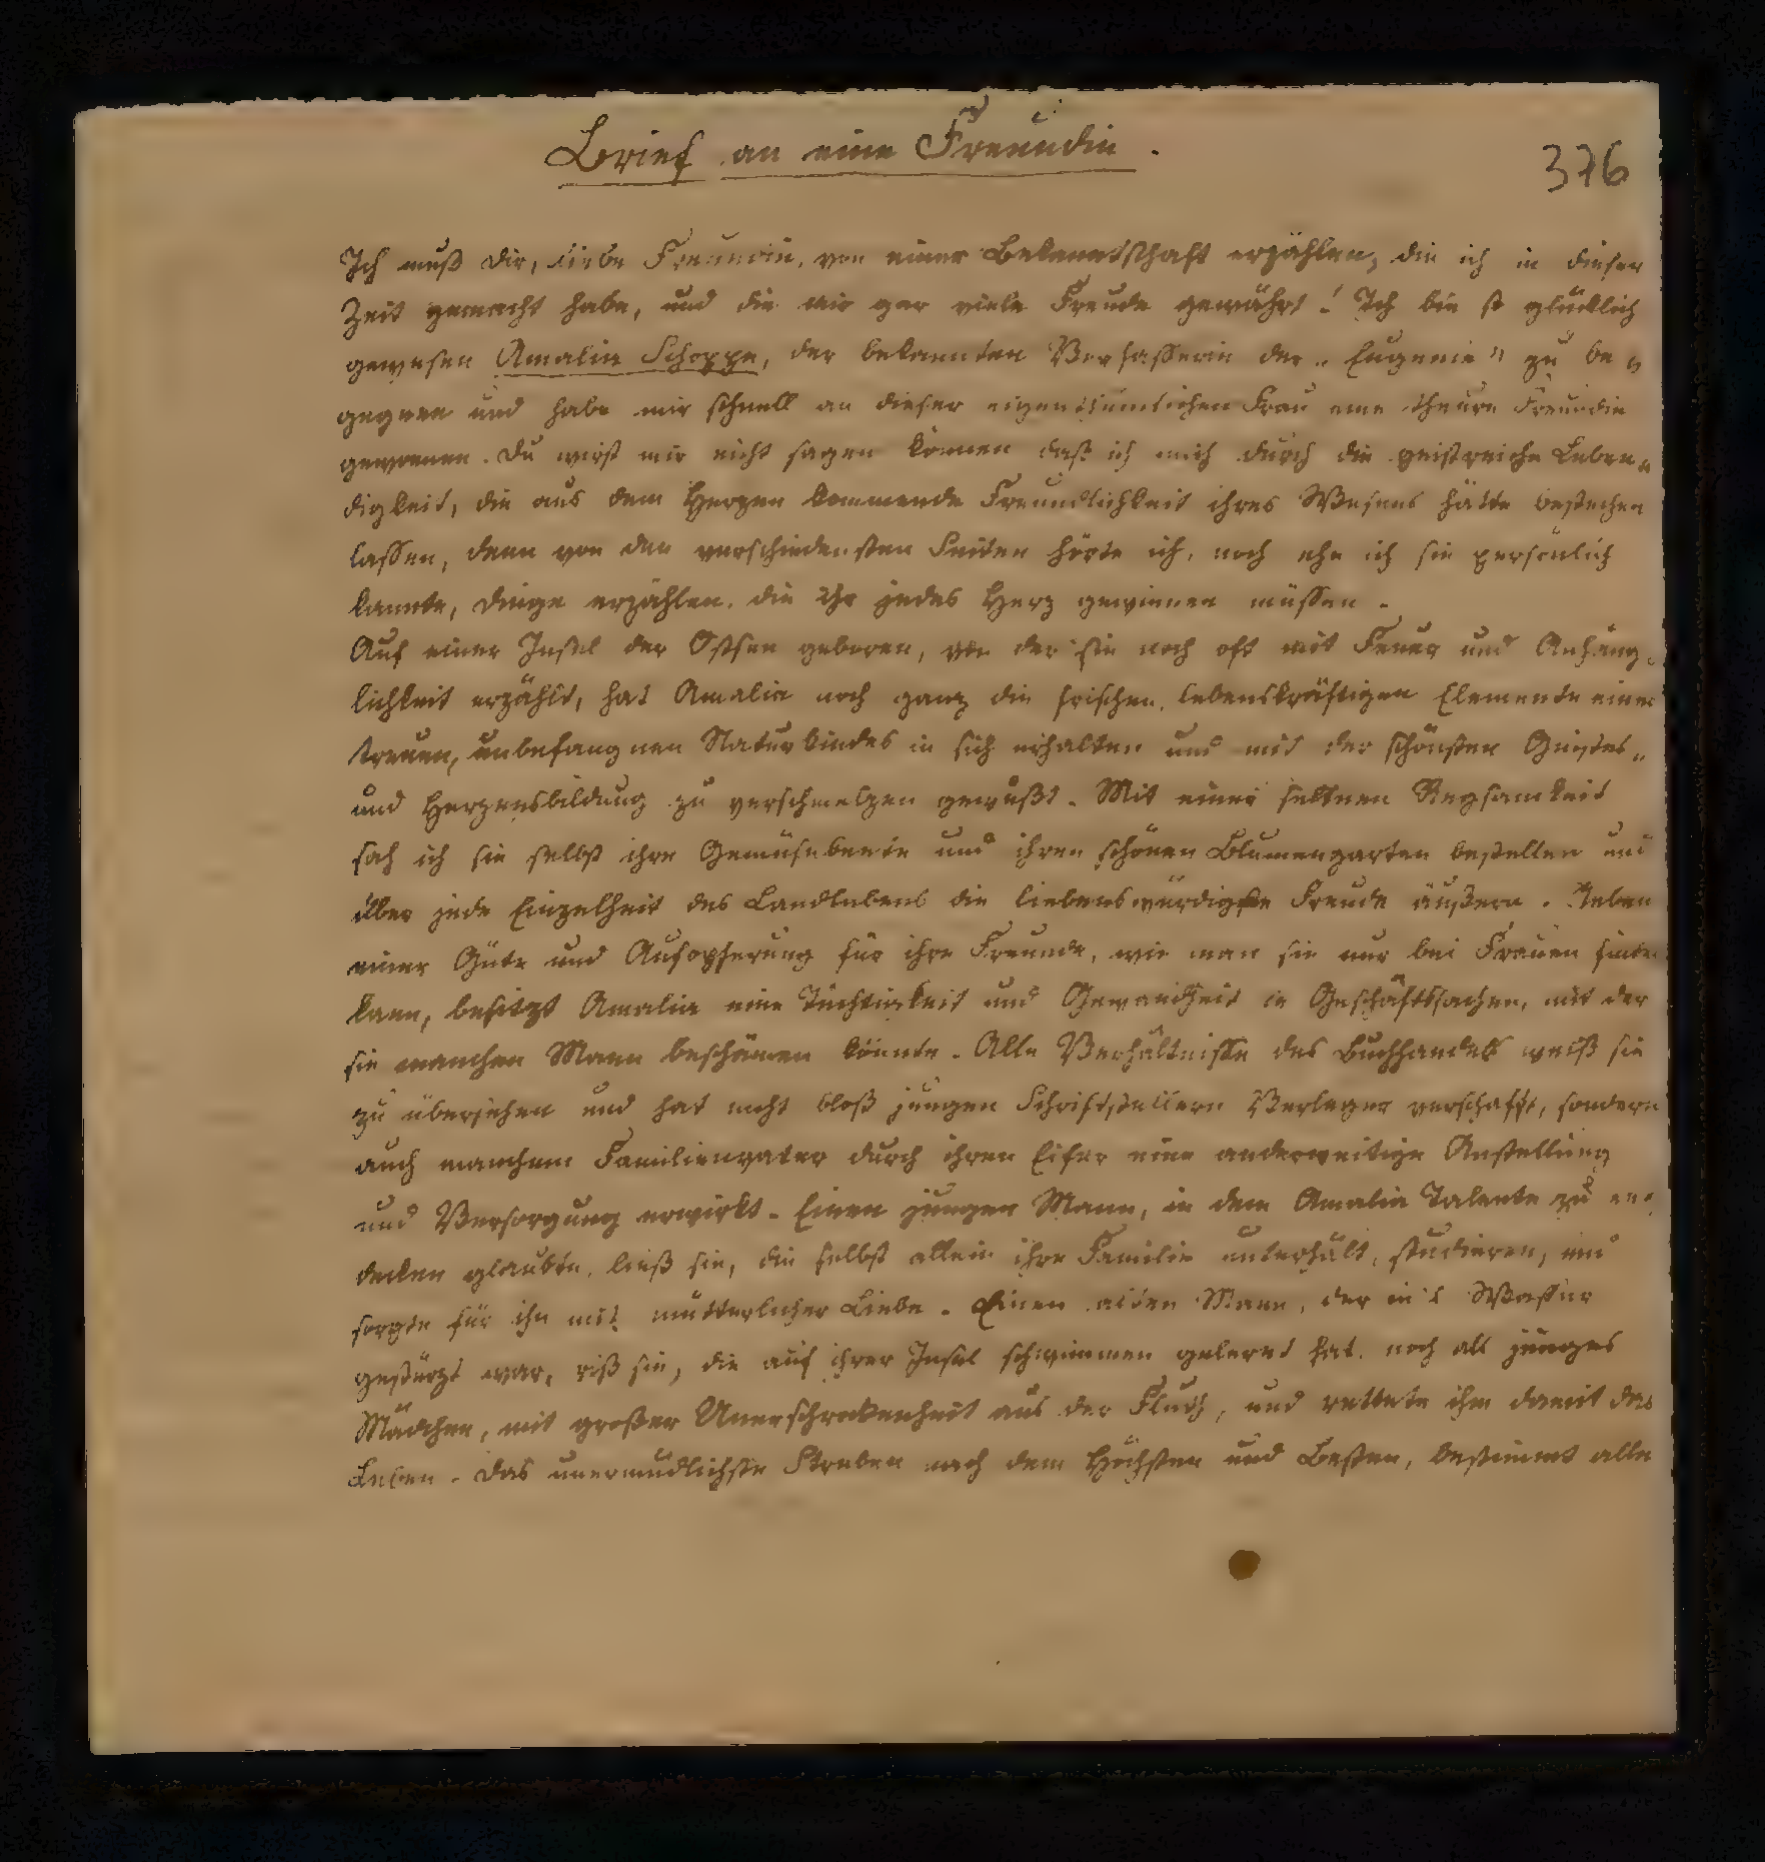 Brief an eine Freundin.
376
Ich muß dir, liebe Freundin, von einer Bekanntschaft erzählen, die ich in dieser
Zeit gemacht habe, und die mir gar viele Freude gewährt! Ich bin so glücklich
gewesen Amalia Schoppe, der bekannten Verfasserin der „Eugenie" zu be„
gegnen und habe mir schnell an dieser eigenthümlichen Frau eine theure Freundin
gewonnen. Du wirst mir nicht sagen können daß ich mich durch die geistreiche Leben„
digkeit, die aus dem Herzen kommende Freundlichkeit ihres Wesens hätte bestechen
lassen, denn von den verschiedensten Seiten hörte ich, noch ehe ich sie persönlich
kannte, Dinge erzählen, die ihr jedes Herz gewinnen müssen.
Auf einer Insel der Ostsee geboren, von der sie noch oft mit Feuer und Anhäng„
lichkeit erzählt, hat Amalia noch ganz die frischen, lebenskräftigen Elemente eines
treuen, unbefangnen Naturkindes in sich erhalten und mit der schönsten Geistes„
und Herzensbildung zu verschmelzen gewußt. Mit einer seltnen Regsamkeit
sah ich sie selbst ihre Gemüsebeete und ihren schönen Blumengarten bestellen und
über jede Einzelheit des Landlebens die liebenswürdigste Freude äußern. Neben
einer Güte und Aufopferung für ihre Freunde, wie man sie nur bei Frauen finden
kann, besitzt Amalia eine Tüchtigkeit und Gewandheit in Geschäftssachen, mit der
sie manchen Mann beschämen könnte. Alle Verhältnisse des Buchhandels weiß sie
zu übersehen und hat nicht bloß jungen Schriftstellern Verleger verschafft, sondern
auch manchem Familienvater durch ihren Eifer eine anderweitige Anstellung
und Versorgung erwirkt. Einen jungen Mann, in dem Amalia Talente zu ent„
decken glaubte, ließ sie, die selbst allein ihre Familie unterhält, studieren, und
sorgte für ihn mit mütterlicher Liebe. Einen alten Mann, der in's Wasser
gestürzt war, riß sie, die auf ihrer Insel schwimmen gelernt hat, noch als junges
Mädchen, mit großer Unerschrockenheit aus der Fluth, und rettete ihm damit das
Leben. Das unermüdlichste Streben nach dem Höchsten und Besten, bestimmt alle